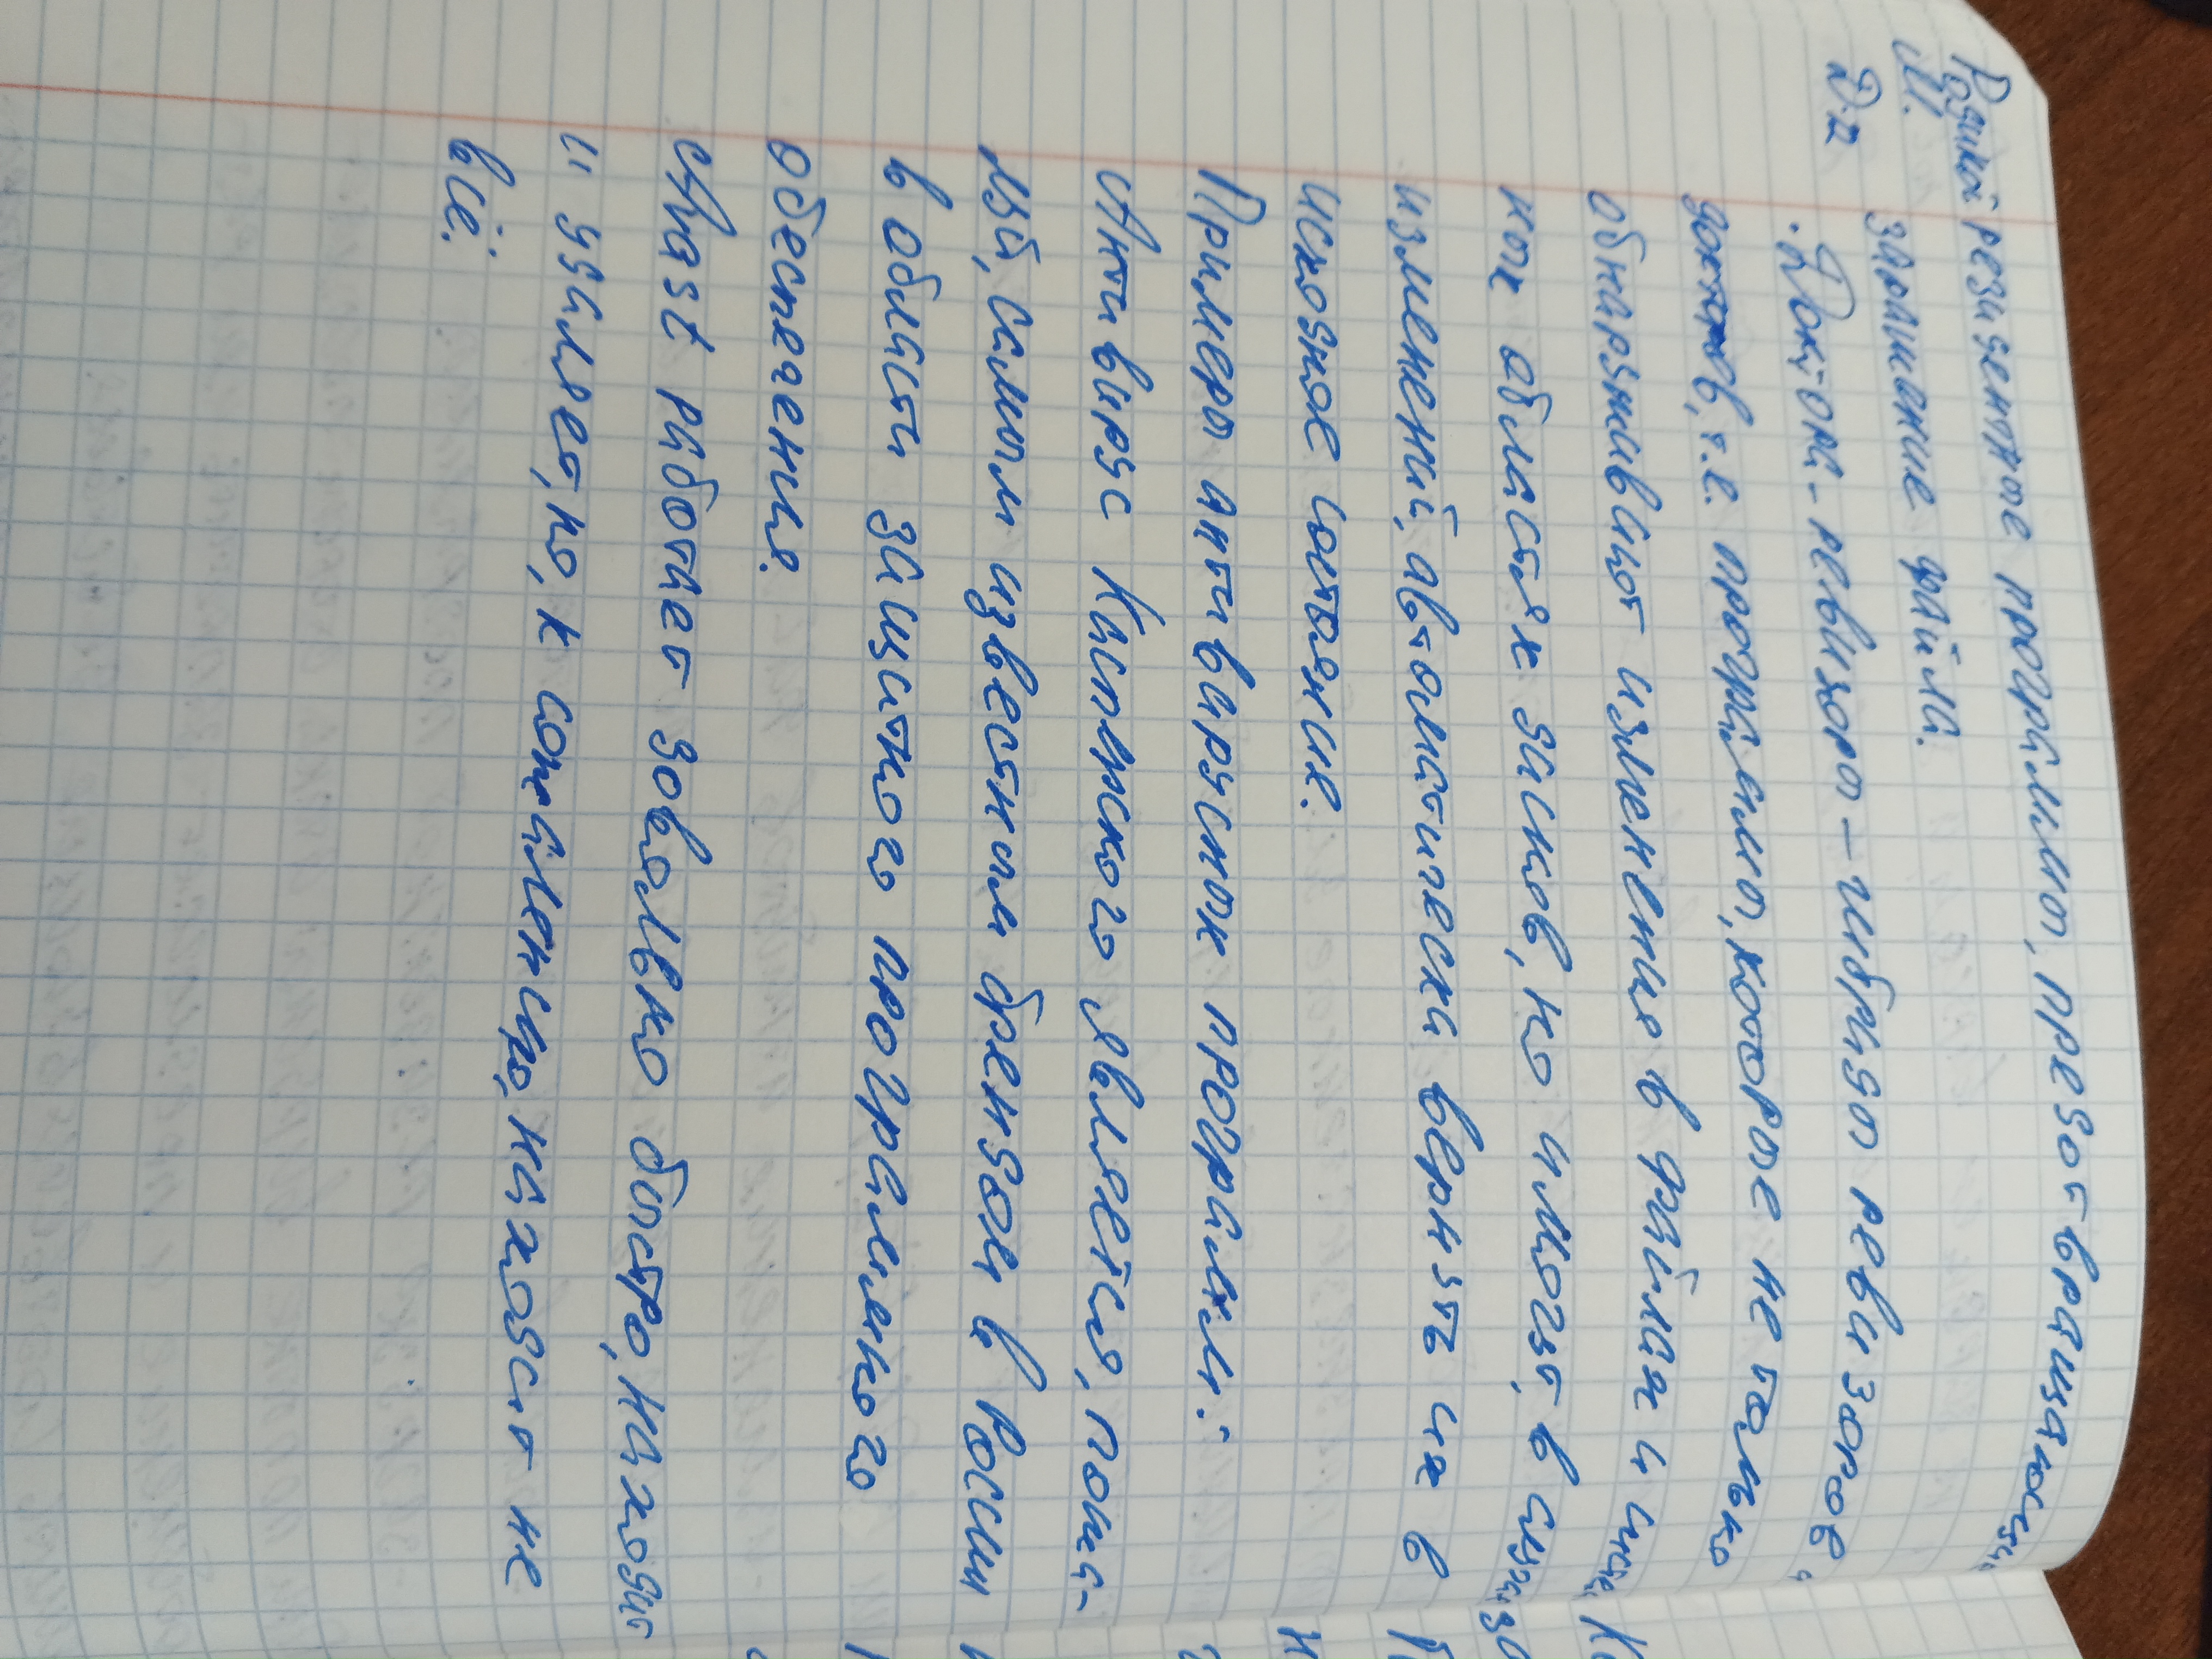 Родин
М.
Д.з
резидентные программы, предотвращающие
заражение файла.
. Доктора-ревизоры – гибриды ревизоров и
докторов, т.е. программы, которые не только
обнаруживают изменения в файлах и
ных областях дисков, но и могут, в случае
изменений, автоматически вернуть их в
исходное состояние.
Примеры антивирусных программ:
Антивирус Касперского является, пожа-
луй, самым известным брендом в России
в области защитного программного
обеспечения.
Avast работает довольно быстро, находит
и удаляет, но, к сожалению, находит не
всё.